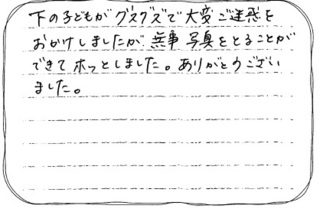 下の子どもがグズグズで大変ご迷惑を
おかけしましたが無事写真をとることが
できてホッとしました。ありがとうござい
ました。